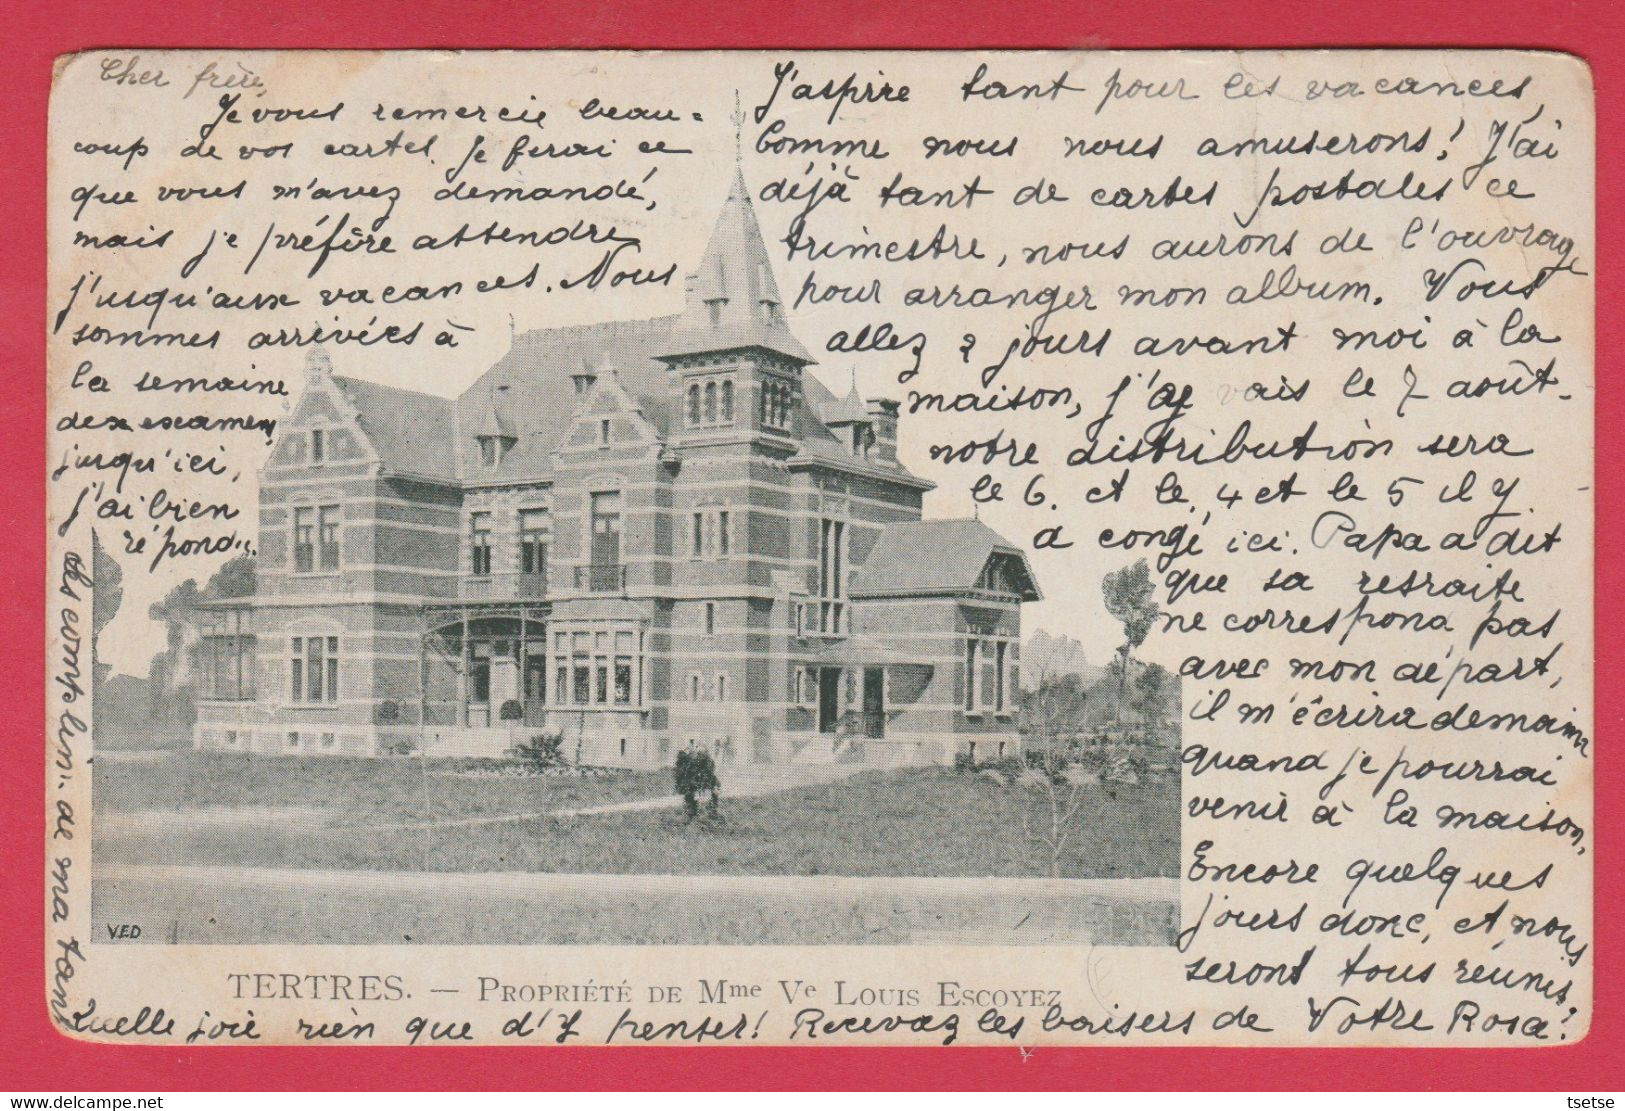 Cher frère,
Je vous remercie beau-
coup de vos cartes. Je ferai ce
que vous m'avez demandé,
mais je préfère attendre
j'usqu'aux vacances. Nous
sommes arrivées à
la semaine
des examens
jusqu'ici,
j'ai bien
répondu.
J'aspire tant pour les vacances,
Comme nous nous amuserons! J'ai
déjà tant de cartes postales ce
trimestre, nous aurons de l'ouvrage
pour arranger mon album. Vous
allez 2 jours avant moi à la
maison, j'y vais le 7 août.
notre distribution sera
le 6. et le 4 et le 5 il y
a congé ici. Papa a dit
que sa retraite
ne correspond pas
avec mon départ,
il m'écrira demain
quand je pourrai
venir à la maison.
Encore quelques
jours donc, et nous
serons tous réunis.
Quelle joie rien que d'y penser! Recevez les baisers de Votre Rosa!
des compli. de ma tante
VED
TERTRES. — PROPRIÉTÉ DE Mme Ve LOUIS ESCOYEZ
delcampe.net
tsetse